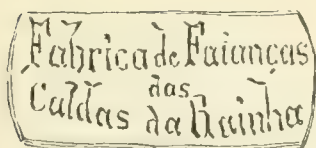 Fabrica de Faianças
das
Caldas da Rainha